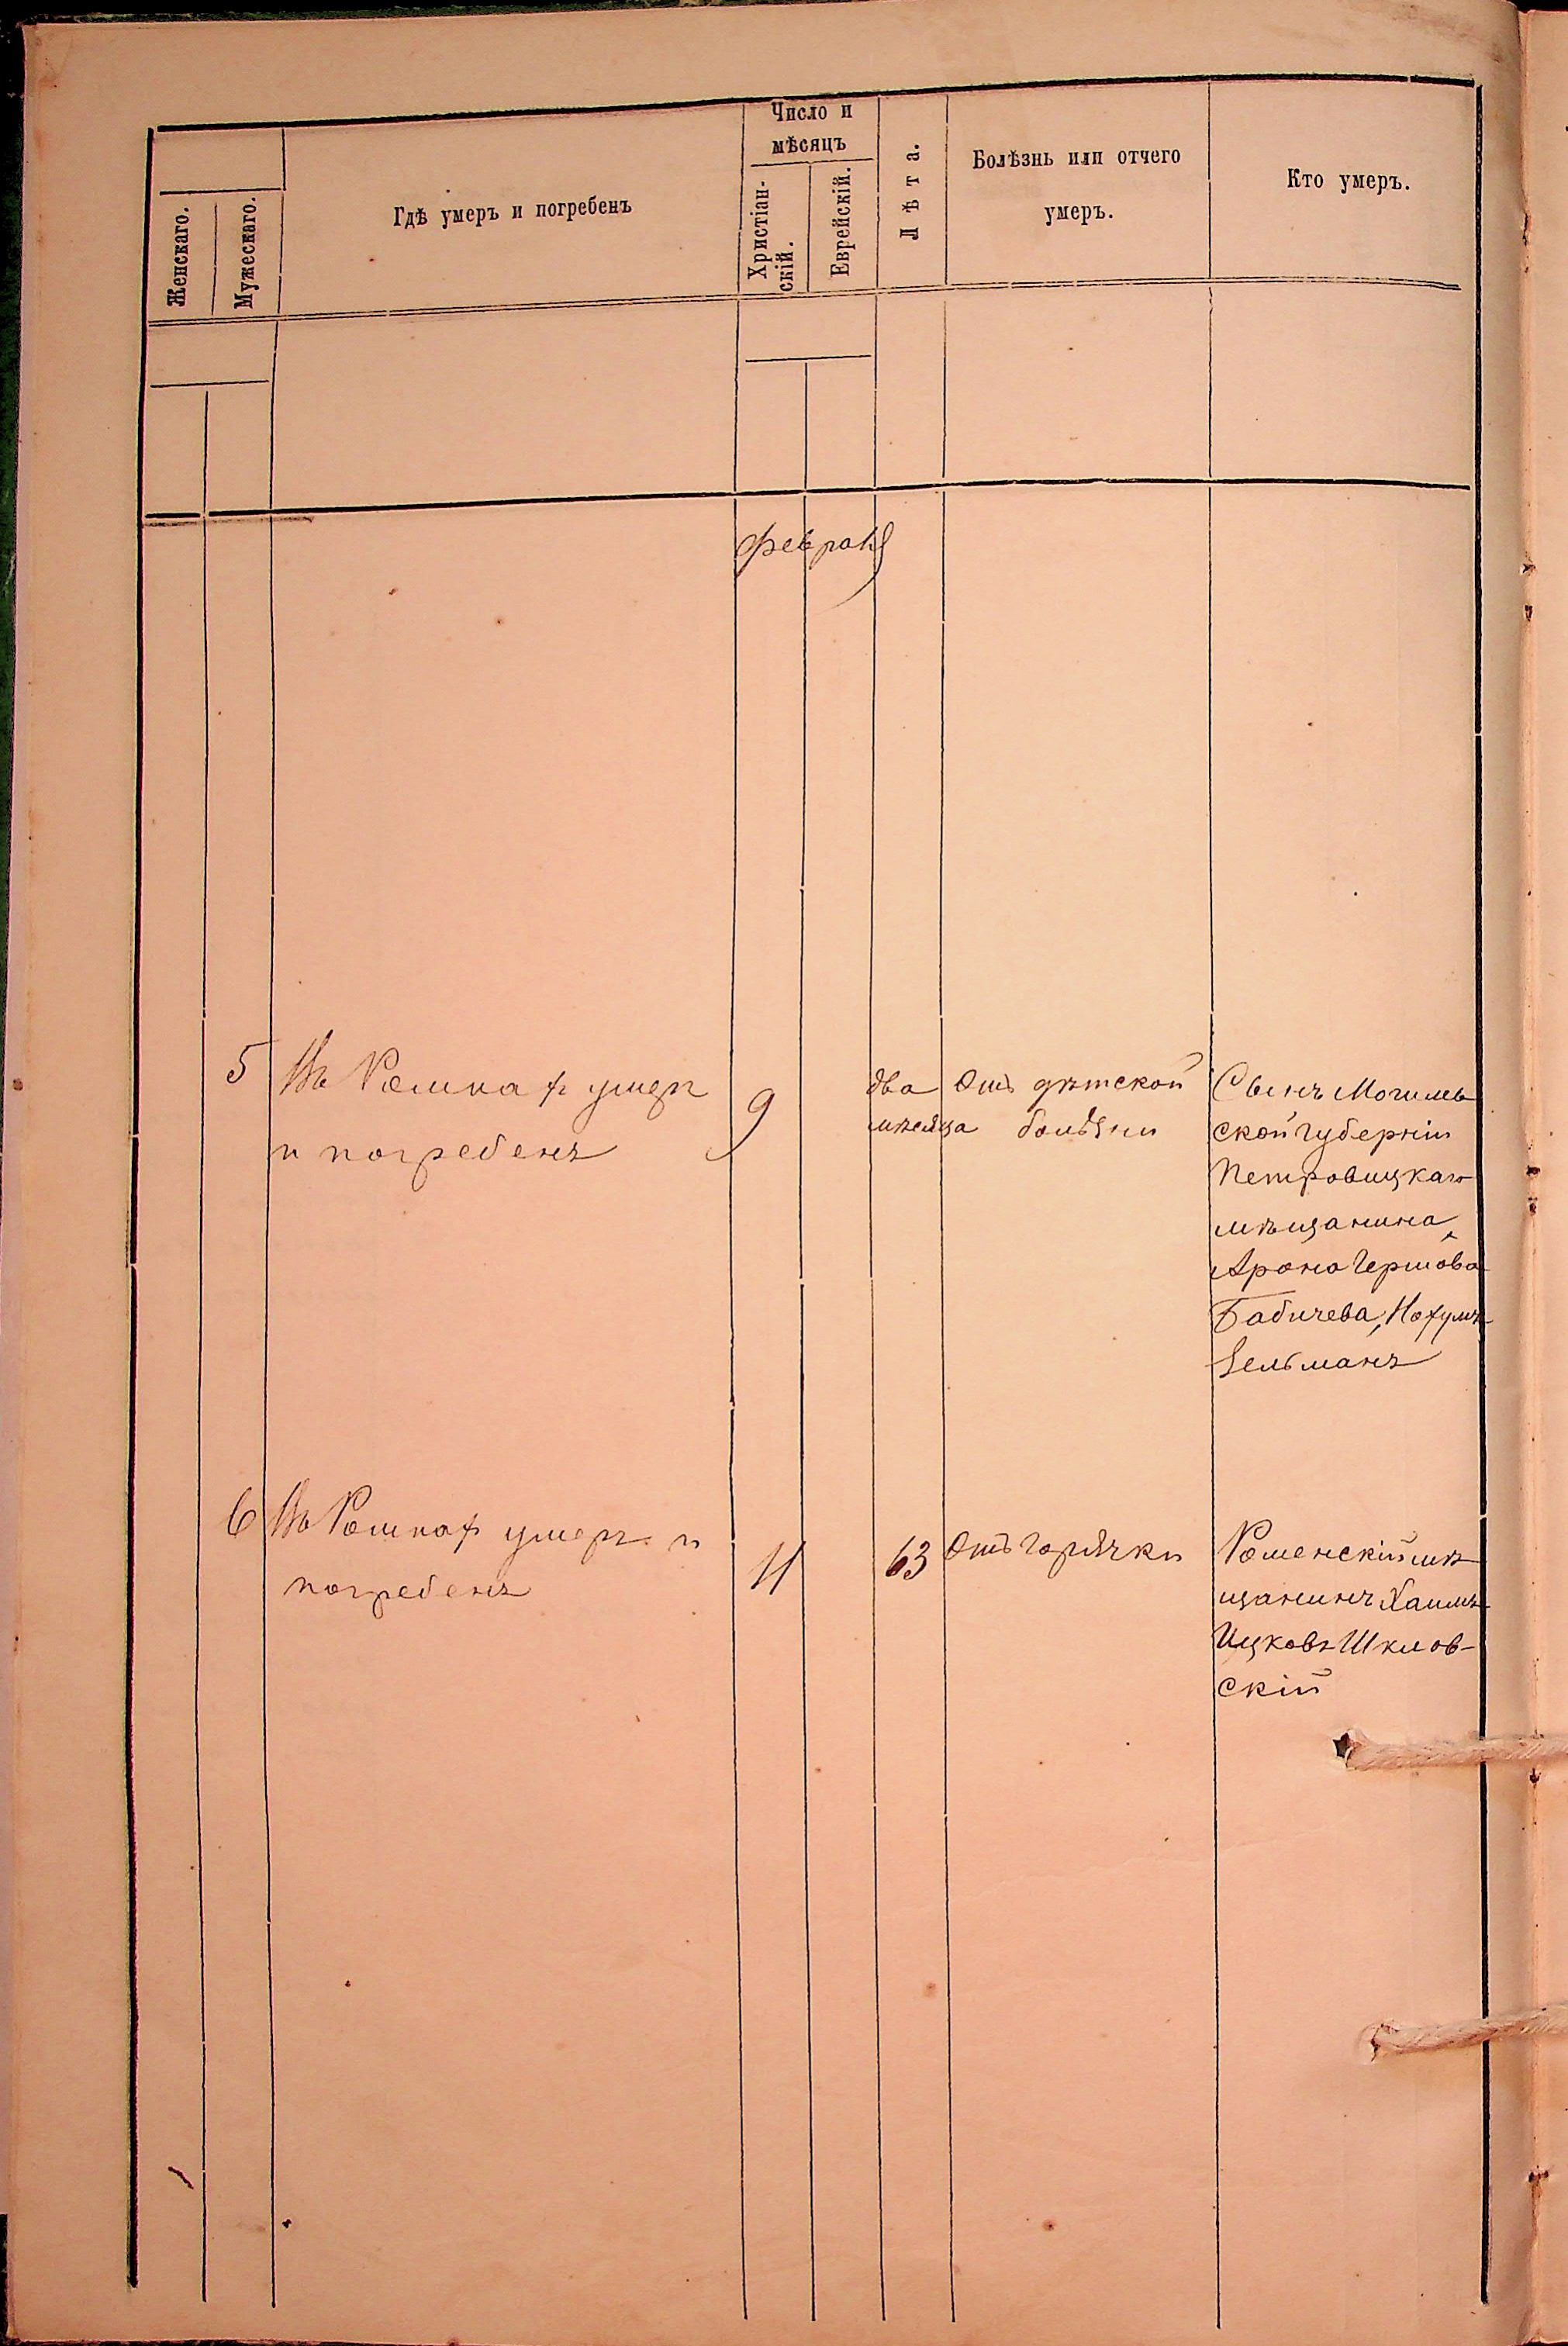 Женскаго.
Мужескаго.
Гдѣ умеръ и погребенъ
Число и
мѣсяцъ
Христіан-
скій.
Еврейскій.
Лѣта.
Болѣзнь или отчего
умеръ.
Кто умеръ.
февраля
5
Въ Ромнахъ умеръ
и погребенъ
9
два
мѣсяца
Отъ дѣтской
болѣзни
Сынъ Могилев
ской губерніи
Петровицкаго
мѣщанина
Арона Гершова
Бабичева, Нохумъ
Зельманъ
6
Въ Ромнахъ умеръ и
погребенъ
11
63
Отъ горячки
Роменскій мѣ
щанинъ Хаимъ
Ицковъ Шклов-
скій